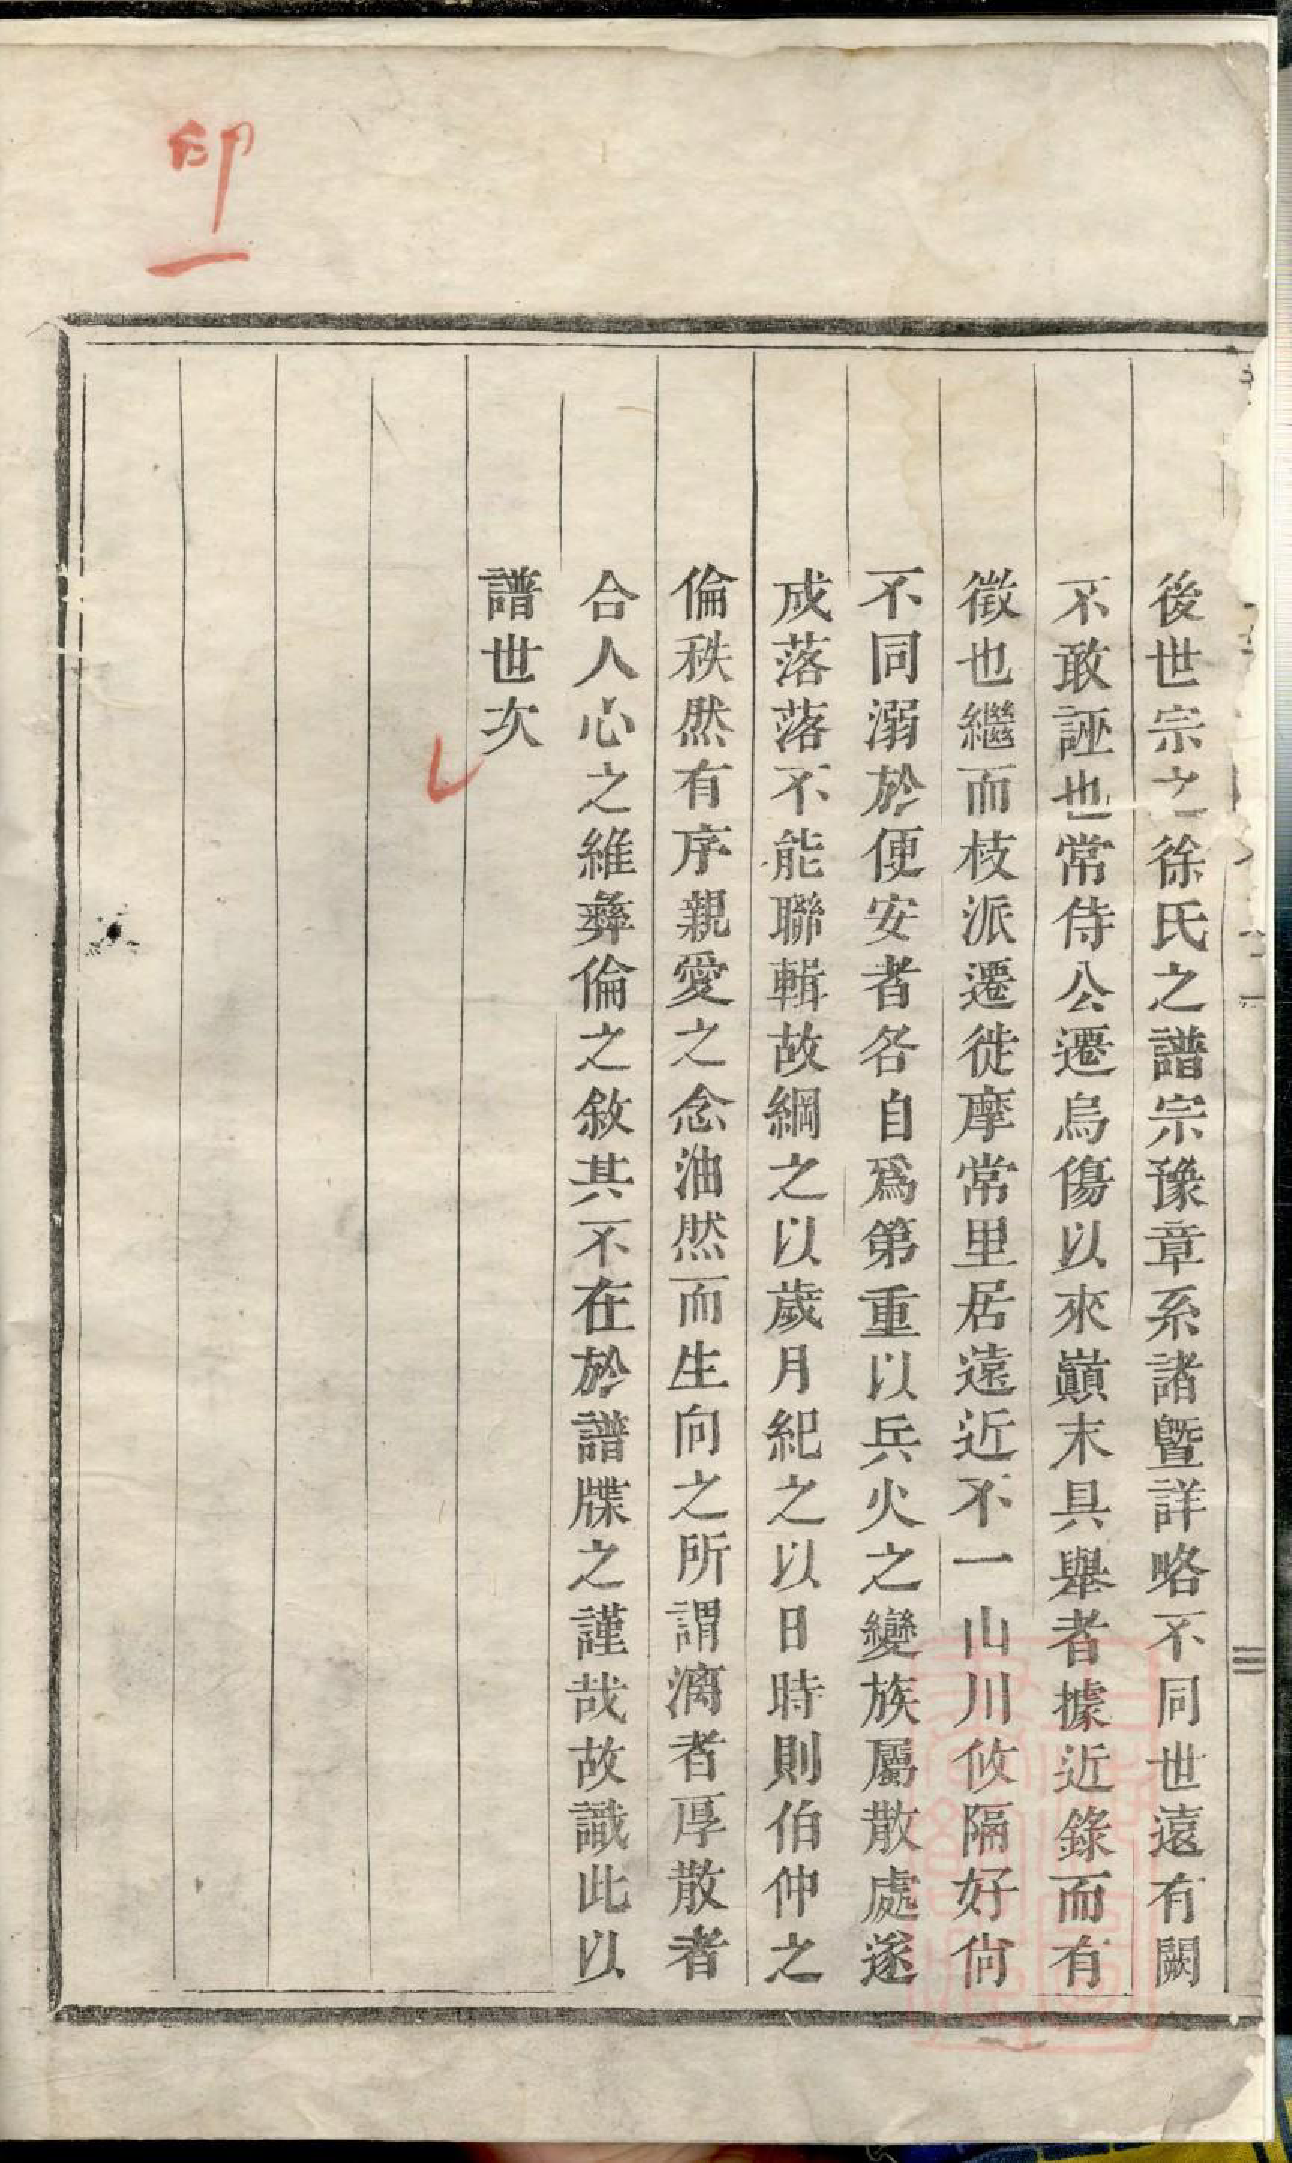 印
一
後世宗之徐氏之譜宗豫章系諸曁詳略不同世遠有闕
不敢誣也常侍公遷烏傷以來巔末具舉者據近錄而有
徵也繼而枝派遷徙摩常里居遠近不一山川攸隔好尙
不同溺於便安者各自爲第重以兵火之變族屬散處遂
成落落不能聯輯故綱之以歲月紀之以日時則伯仲之
倫秩然有序親愛之念油然而生向之所謂漓者厚散者
合人心之維彝倫之敘其不在於譜牒之謹哉故識此以
譜世次